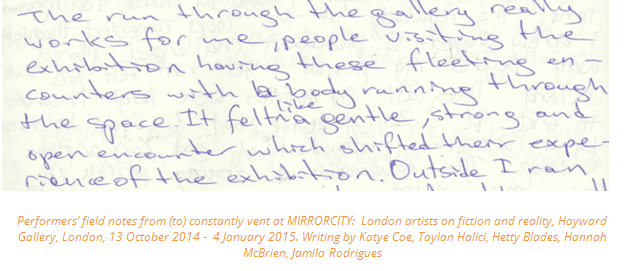 The run through the gallery really
works for me, people visiting the
exhibition having these fleeting en-
counters with a body running through
the space. It felt like a gentle, strong and
open encounter which shifted their expe-
rience of the exhibition. Outside I ran
Performers' field notes from (to) constantly vent at MIRRORCITY:  London artists on fiction and reality, Hayward
Gallery, London, 13 October 2014 -  4 January 2015. Writing by Katye Coe, Taylan Halici, Hetty Blades, Hannah
McBrien, Jamila Rodrigues